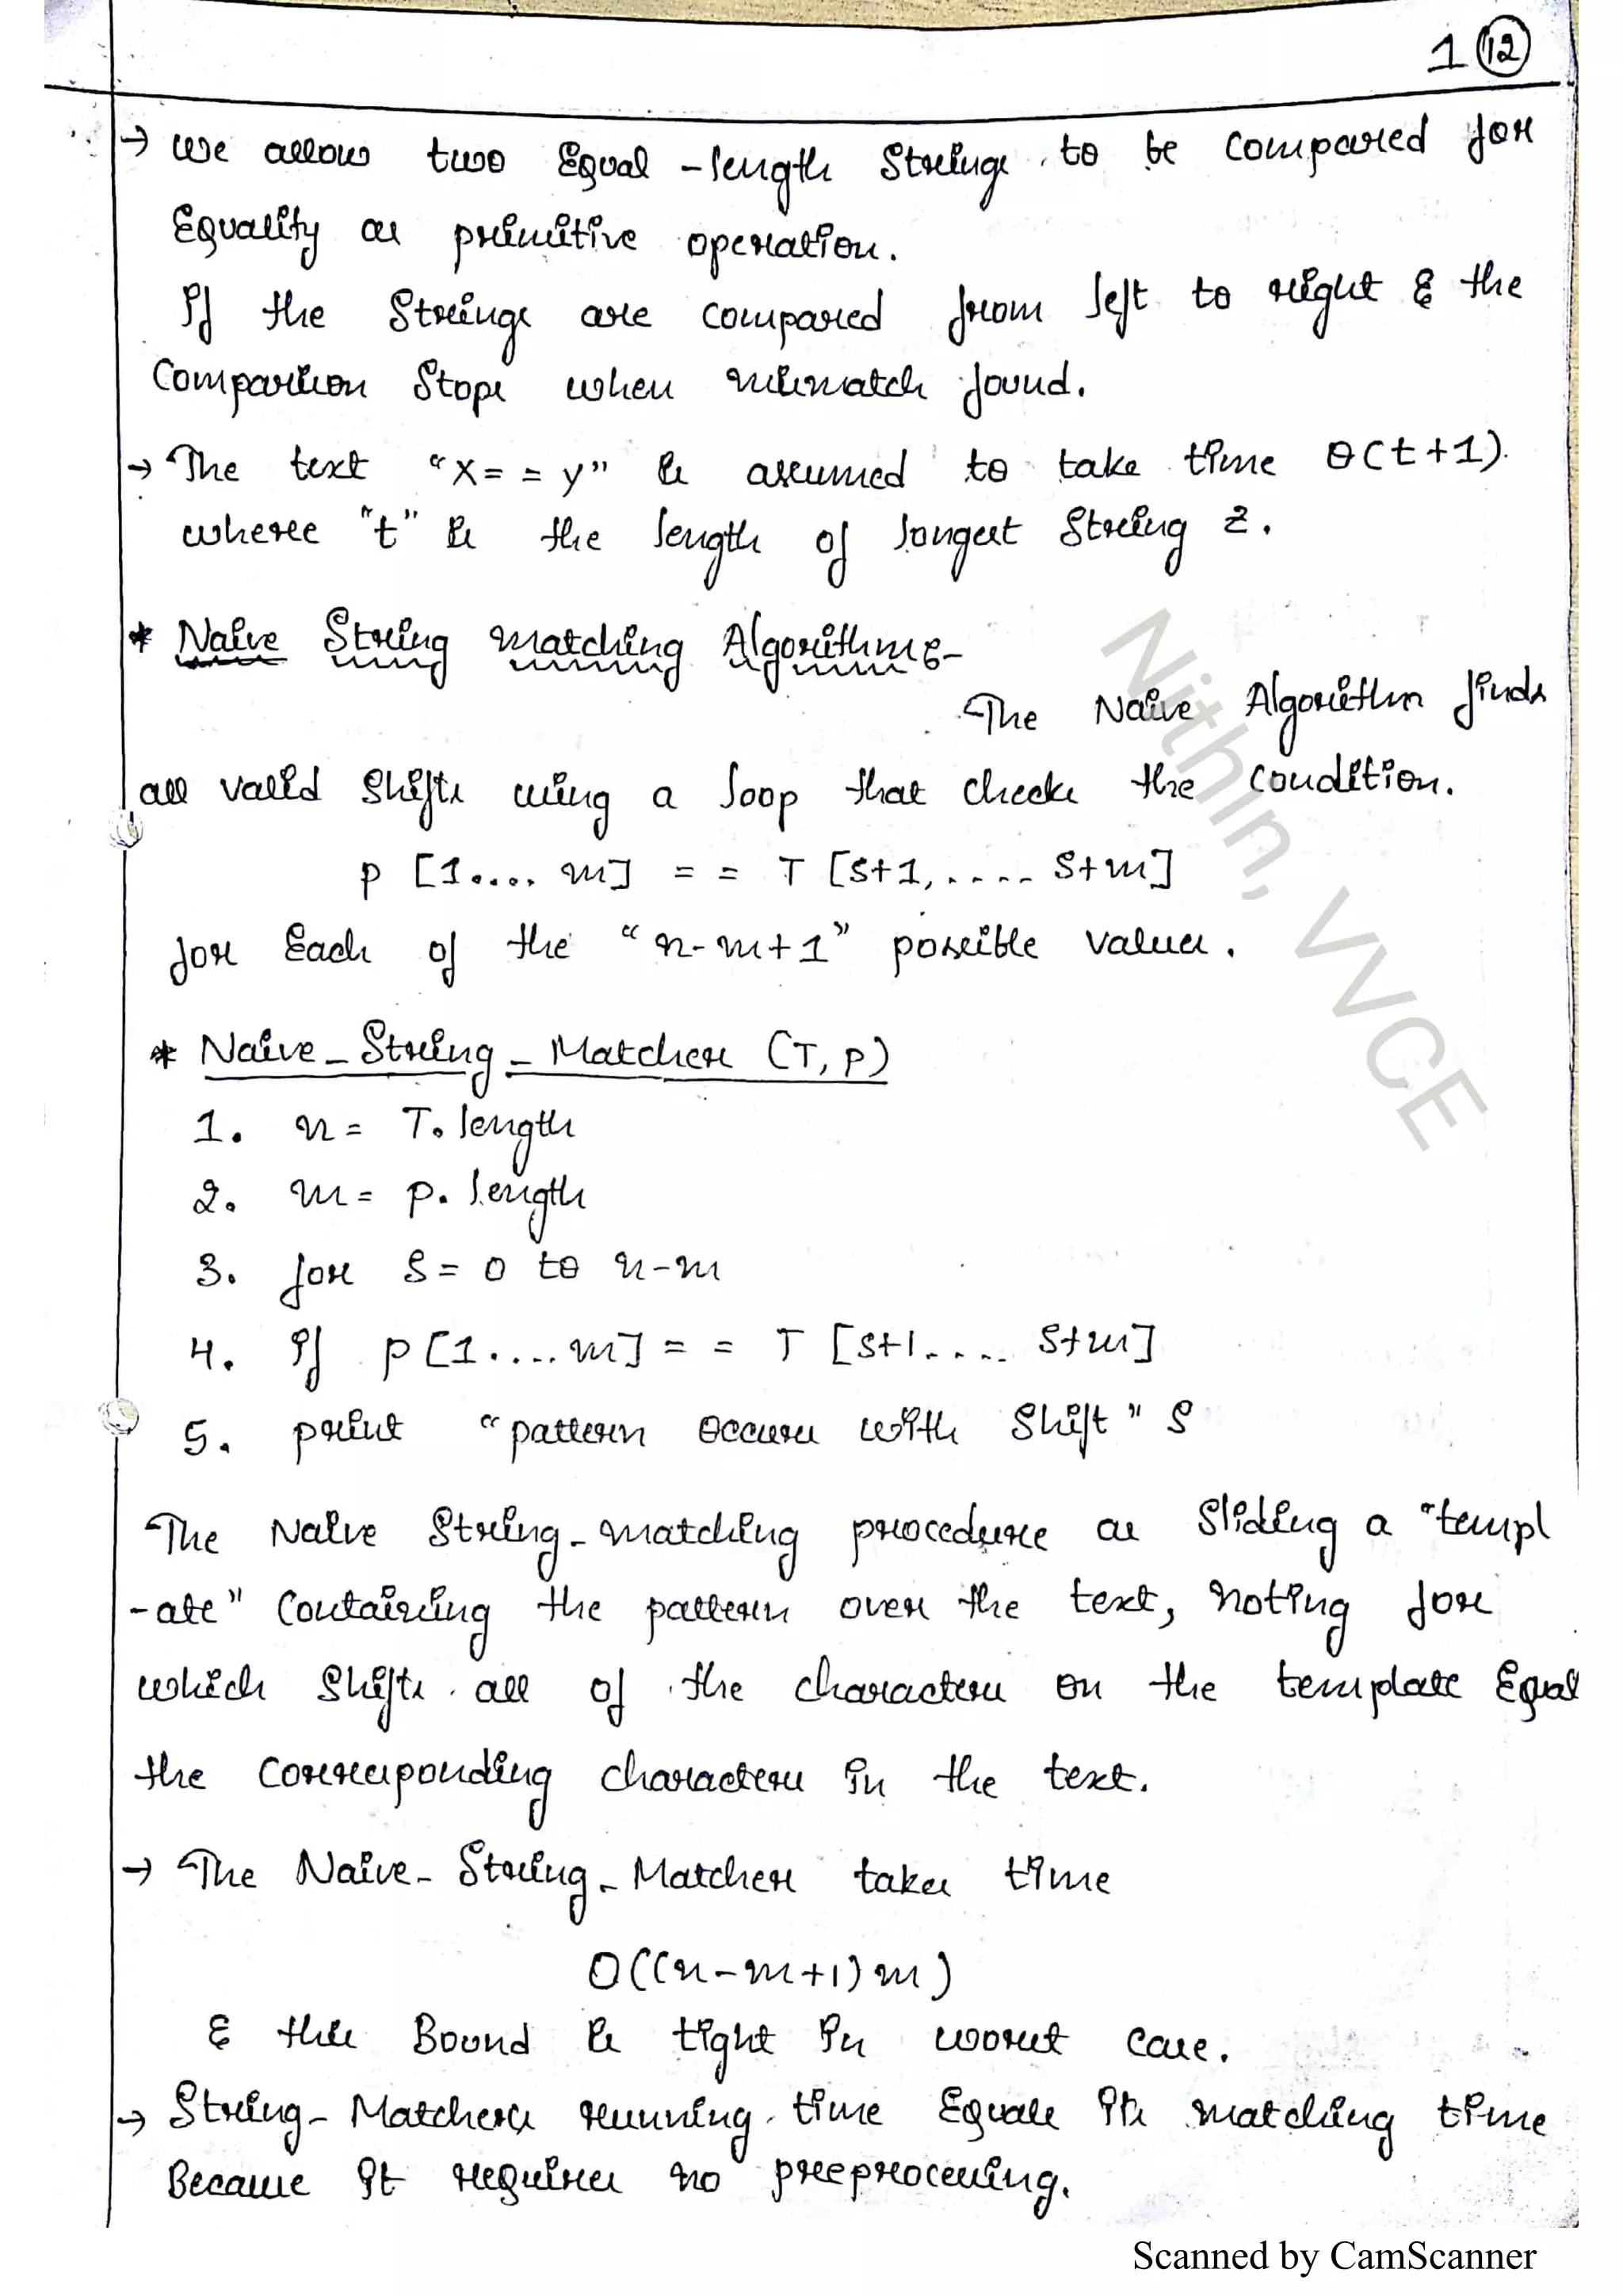 1 (12)
→ We allow two Equal-length Strings to be compared for
Equality as primitive operation.
If the Strings are compared from left to right & the
Comparision Stops when mismatch found.
→ The text "X= = y" is assumed to take time θ(t+1).
where "t" is the length of longest String z.
* Naive String matching Algorithms-
The Naive Algorithm finds
all valid shifts using a loop that checks the condition.
P [1.... m] = = T [S+1,.... S+m]
for Each of the "n-m+1" possible values.
* Naive_String_Matcher (T, P)
1. n= T. length
2. m= p. length
3. for S= 0 to n-m
4. If P[1.... m] = = T [S+1.... S+m]
5. print "pattern occurs with Shift" S
The Naive String-matching procedure as Sliding a "templ
-ate" Containing the pattern over the text, noting for
which Shifts all of the characters on the template Equal
the Corresponding characters in the text.
→ The Naive-String-Matcher takes time
O((n-m+1)m)
& this Bound is tight in worst case.
→ String-Matchers running time Equals its matching time
Because It requires no preprocessing.
Nithin, VVCE
Scanned by CamScanner